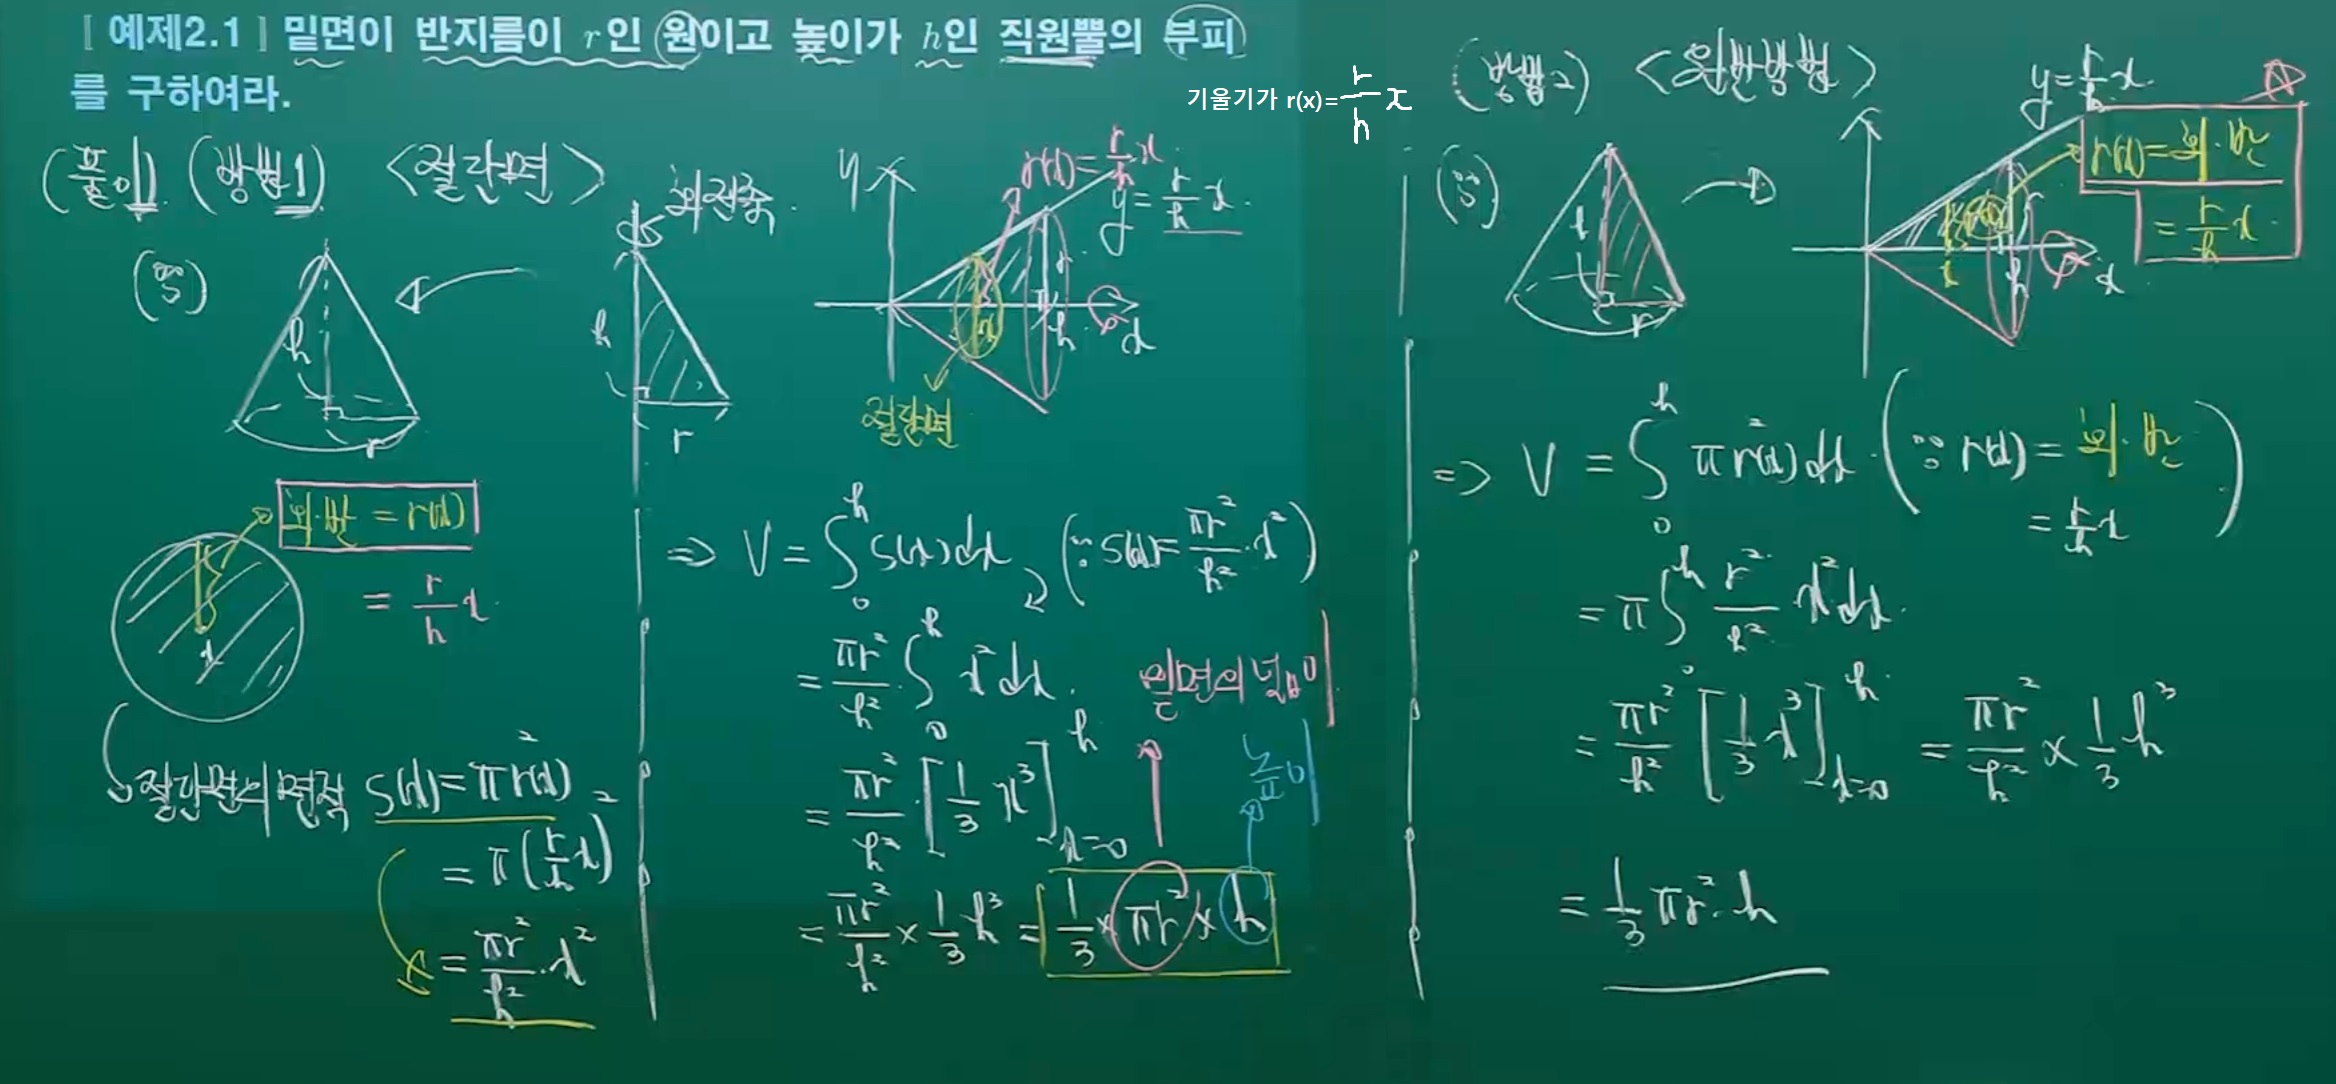 [ 예제2.1 ] 밑면이 반지름이 r인 원이고 높이가 h인 직원뿔의 부피
를 구하여라.
기울기가 r(x)=r/h x
(풀이) (방법1) <절단면>
회전축.
h
r
h
r
y
r(x)=r/h x
y=r/h x.
r
x
h
x
절단면
회·반 = r(x)
= r/h x
x
절단면의 면적 S(x)=πr(x)²
=π(r/h x)²
=πr²/h²·x²
⇒ V=∫₀ʰ S(x)dx (∵S(x)=πr²/h²·x²)
=πr²/h²·∫₀ʰ x²dx.
=πr²/h²·[1/3 x³]ʰₓ₌₀
=πr²/h²×1/3 h³=1/3×πr²×h
밑면의 넓이
높이
(방법2) <원판방법>
y=r/h x.
r(x)=회·반
=r/h x.
h
r
x
r
h
x
⇒ V=∫₀ʰ πr(x)²dx.(∵r(x)=회·반
=r/h x)
=π∫₀ʰ r²/h² x²dx.
=πr²/h² [1/3 x³]ʰₓ₌₀ =πr²/h²×1/3 h³
=1/3 πr²·h